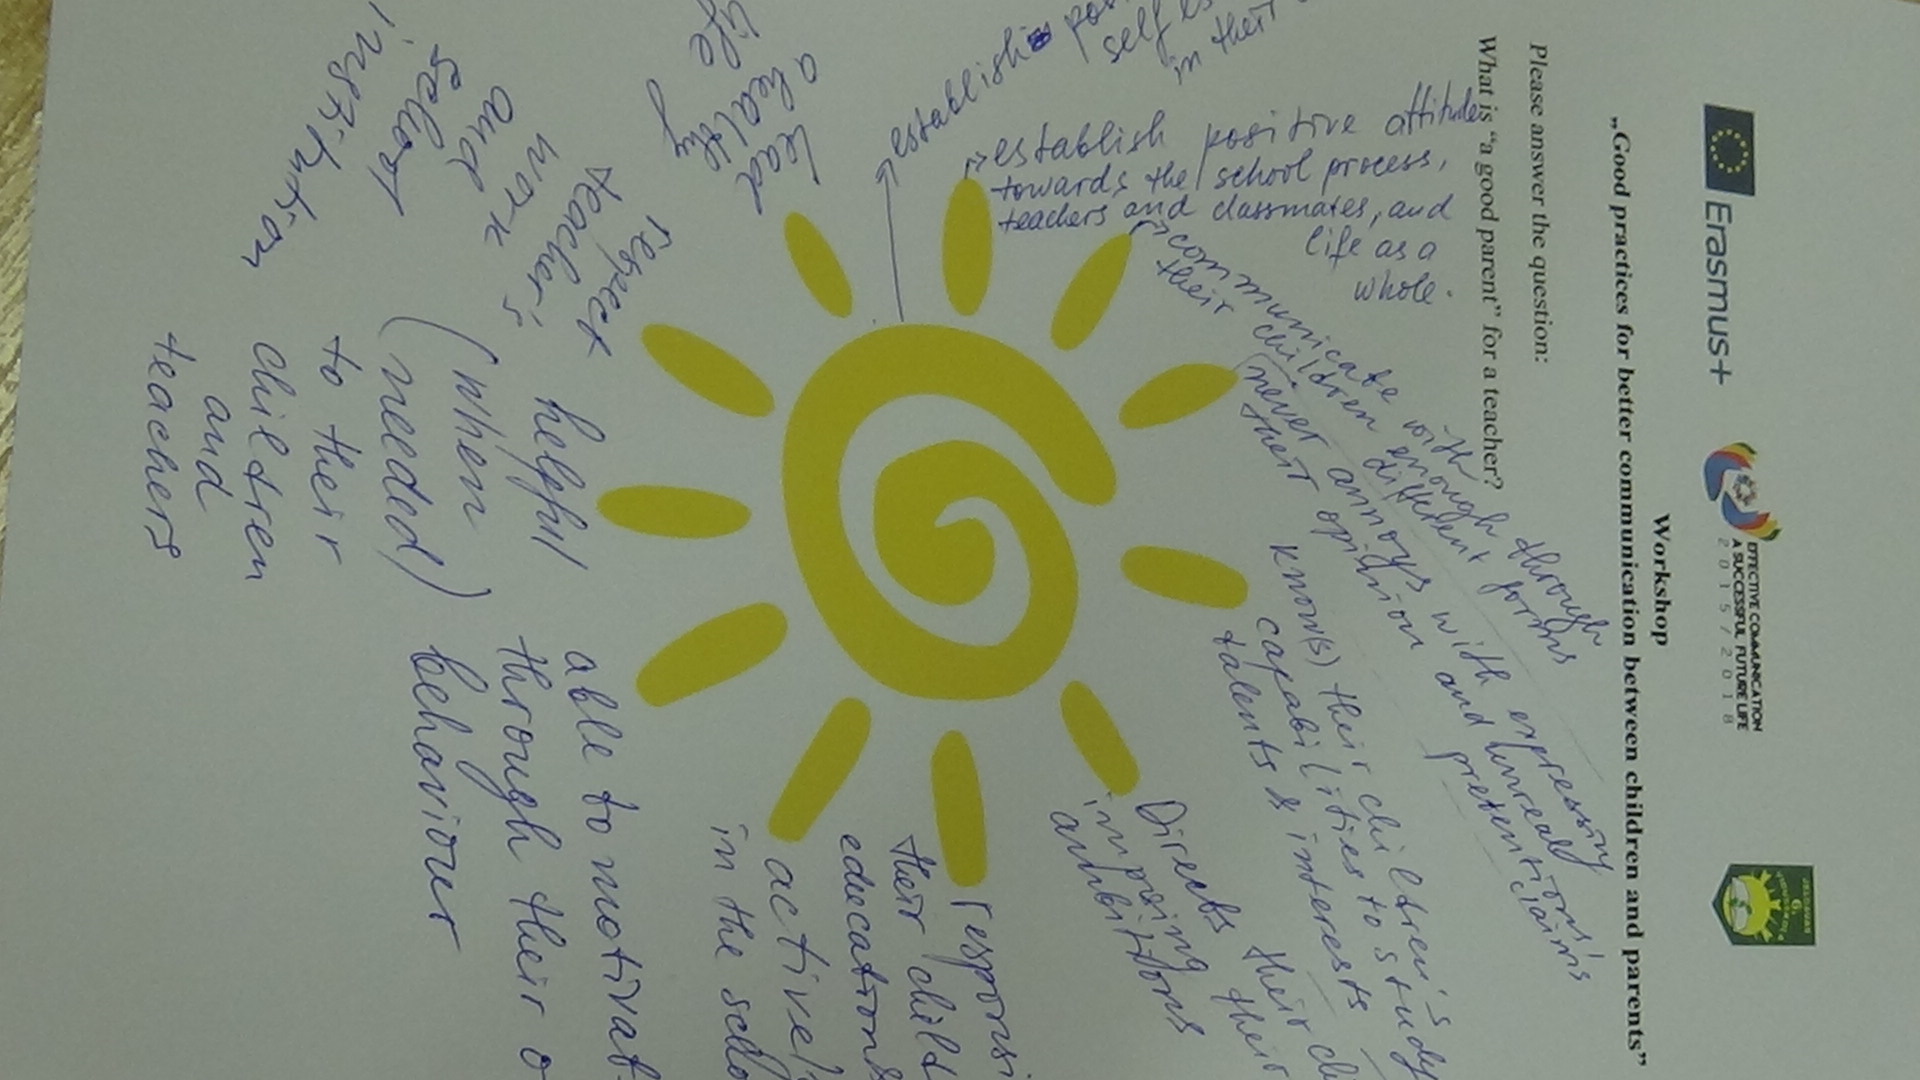 Erasmus+
EFFECTIVE COMMUNICATION
A SUCCESSFUL FUTURE LIFE
2015/2018
Workshop
„Good practices for better communication between children and parents”
Please answer the question:
What is “a good parent” for a teacher?
establish
self
in their
establish positive attitudes
towards the school process,
teachers and classmates, and
life as a
whole.
communicate with
their children enough through
different forms
never annoys with expressing
their opinion and unreal
pretentions
claims
know(s) their children's
capabilities to study
talents & interests
Directs their
imposing their
ambitions
their
education
in the
able to
through their
behaviour
helpful
(when
needed)
to their
children
and
teachers
respect
teacher's
work
and
school
institution
lead
a healthy
life